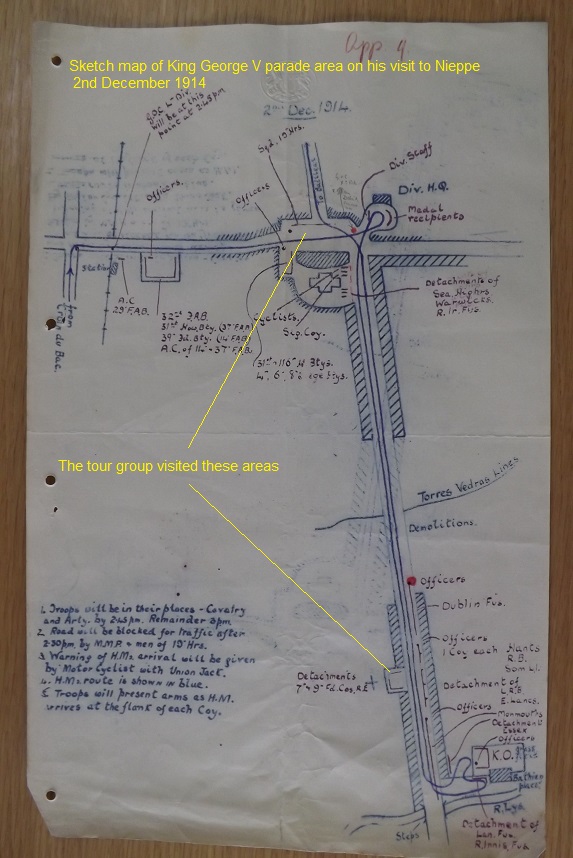 App 9.
Sketch map of King George V parade area on his visit to Nieppe
2nd December 1914
2nd Dec. 1914.
G.O.C. 4th Div.
will be at this
point at 2.45pm
Officers.
Officers
Sqd. 19th Hrs.
To Bailleul
Div. Staff
Div. H.Q.
Medal
recipients
Station
A.C.
29 F.A.B.
from
Croix du Bac.
32nd F.A.B.
31st How. Bty. (37 F.A.B.)
A.C. of 14th + 37 F.A.B.
Cyclists
Sig. Coy.
31st + 116th H Btys.
Detachments of
Sea. Highrs
Warwicks.
R. Ir. Fus.
The tour group visited these areas
Torres Vedras Lines
Demolitions.
Officers
Dublin Fus.
Officers
1 Coy each Hants
R.B.
Som. L.I.
Detachment of
L.R.B
E. Lancs.
Officers
Monmouths
Detachment
Essex
Officers
K.O.
Bathing
place.
R. Lys.
Detachment of
Lan. Fus.
R. Innis. Fus.
Steps
Detachments
7th & 9th Fd. Cos. R.E
1. Troops will be in their places - Cavalry
and Arty. by 2.45pm. Remainder 3pm
2. Road will be blocked for traffic after
2.30pm by M.M.P. + men of 19th Hrs.
3. Warning of H.Ms. arrival will be given
by Motor Cyclist with Union Jack.
4. H.Ms. route is shown in blue.
5. Troops will present arms as H.M.
arrives at the flank of each Coy.